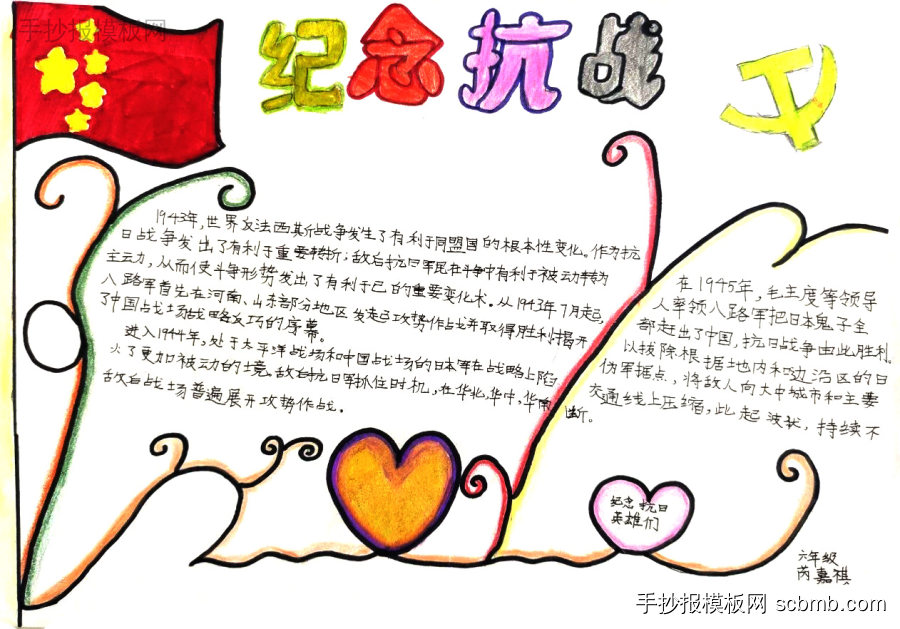 手抄报模板网
纪念抗战
1943年，世界反法西斯战争发生了有利于同盟国的根本性变化。作为抗
日战争发出了有利于重要转折；敌后抗日军民在斗争中有利于被动转为
主动力，从而使斗争形势发出了有利于己的重要变化术。从1943年7月起，
八路军首先在河南、山东部分地区发起攻势作战并取得胜利揭开
了中国占战场战略反巧的序幕。
进入1944年，处于太平洋战场和中国战场的日本军在战略上陷
火了更加被动的境。敌后抗日军抓住时机，在华北，华中，华南
敌后战场普遍展开攻势作战。
在1945年，毛主度等领导
人率领八路军把日本鬼子全
都赶出了中国，抗日战争由此胜利。
以拔除根据地内和边沿区的日
伪军据点，将敌人向大中城市和主要
交通线上压缩，此起波状，持续不
断。
纪念抗日
英雄们
六年级
芮嘉祺
手抄报模板网 scbmb.com